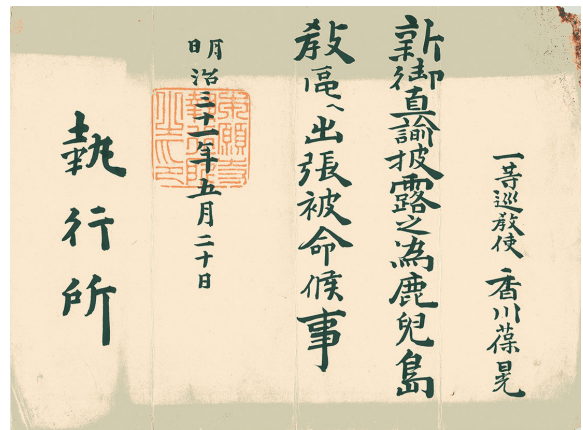 一等巡教使 香川葆晃
新御真諭披露之為鹿兒島
教區へ出張被命候事
明治三十一年五月二十日
執行所